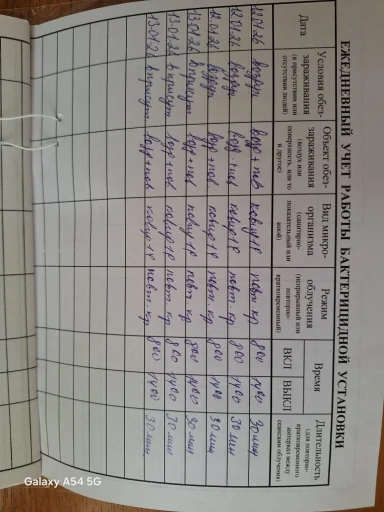 ЕЖЕДНЕВНЫЙ УЧЕТ РАБОТЫ БАКТЕРИЦИДНОЙ УСТАНОВКИ
Дата
Условия обез-
зараживания
(в присутствии или
отсутствии людей)
Объект обез-
зараживания
(воздух или
поверхность, или то
и другое)
Вид микро-
организма
(санитарно-
показательный или
иной)
Режим
облучения
(непрерывный или
повторно-
кратковременный)
Время
ВКЛ ВЫКЛ
Длительность
(для повторно-
кратковременного
интервал между
сеансами облучения)
12.01.26 возд + пов повт. кр 800 1400 30 мин
12.01.26 повт. кр 800 1400 30 мин
12.01.26 возд + пов повт. кр 800 1400 30 мин
13.01.26 в присут возд + пов повт. кр 800 1400 30 мин
13.01.26 в присут возд + пов повт. кр 800 1400 30 мин
13.01.26 в присут возд + пов повт. кр 800 1400 30 мин
Galaxy A54 5G